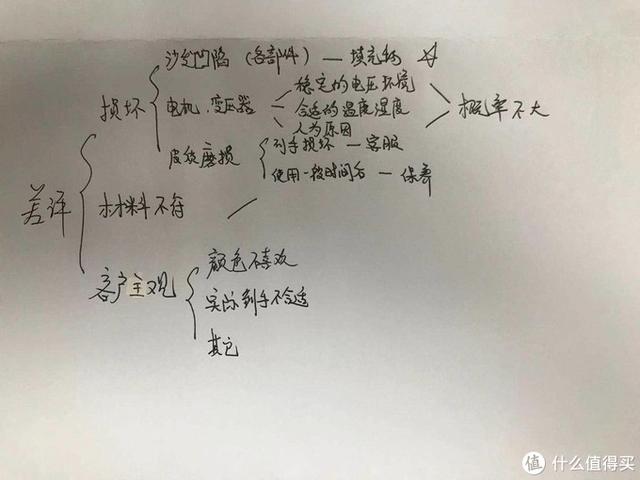 沙发凹陷（各部件）— 填充物 ☆
稳定的电压环境
损坏 电机、变压器 — 合适的温度湿度 概率不大
人为原因
皮纹磨损 到手损坏 — 客服
使用一段时间后 — 保养
差评 材料不符
客户主观 颜色不喜欢
实际到手不合适
其它
值 什么值得买